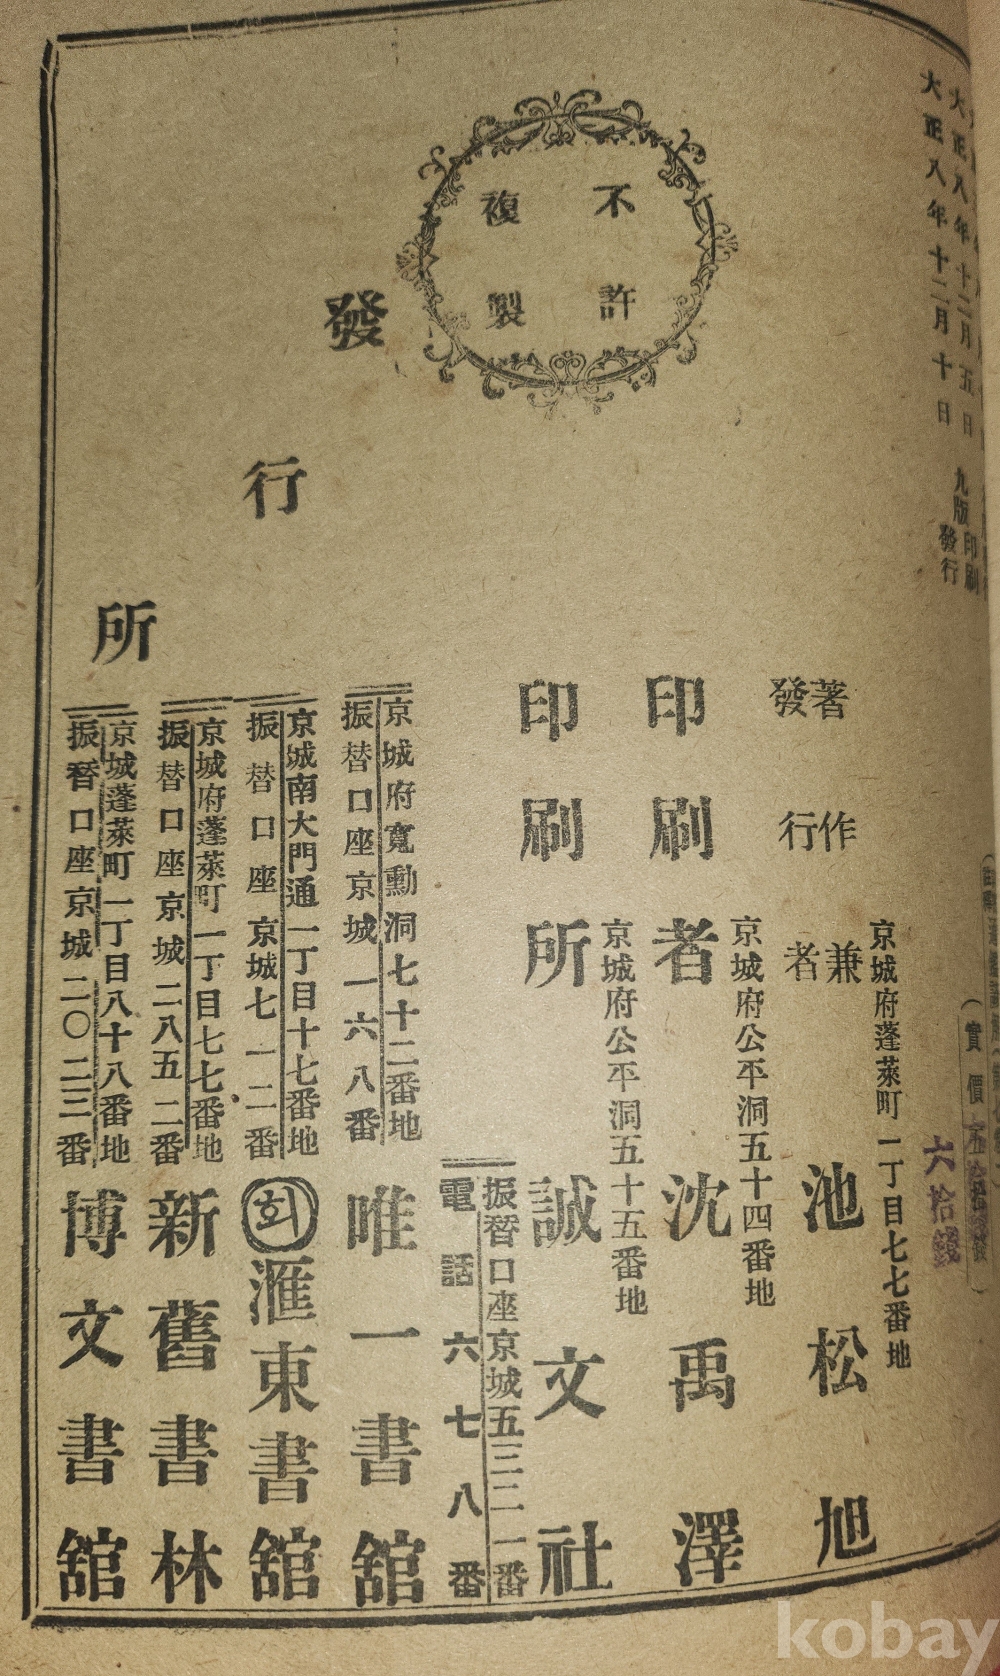 大正八年十二月五日 九版印刷
大正八年十二月十日 九版發行
六拾錢
不許
複製
京城府蓬萊町一丁目七七番地
著作兼
發行者 池松旭
京城府公平洞五十四番地
印刷者 沈禹澤
京城府公平洞五十五番地
印刷所 誠文社
發行所
振替口座京城五三二一番
電話六七八番
京城府寬勳洞七十二番地
振替口座京城一六八番
唯一書舘
京城南大門通一丁目十七番地
振替口座京城七一二番
회 滙東書舘
京城府蓬萊町一丁目七七番地
振替口座京城二八五二番
新舊書林
京城蓬萊町一丁目八十八番地
振替口座京城二〇二三番
博文書舘
kobay